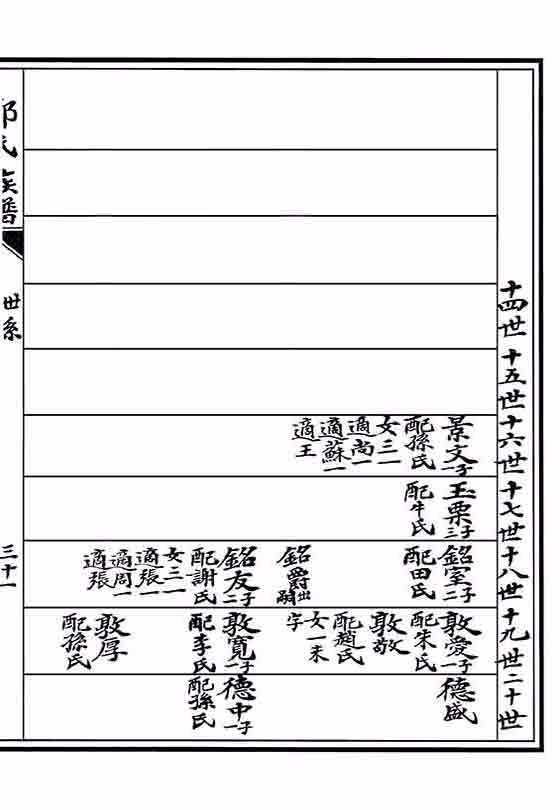 十四世
十五世
十六世
十七世
十八世
十九世
二十世
景文一子
配孫氏
女三一
適尚一
適蘇一
適王
玉栗三子
配牛氏
銘室二子
配田氏
銘爵出嗣
銘友二子
配謝氏
女三一
適張一
適周一
適張
敦愛一子
配朱氏
敦敬
配趙氏
女一未
字
敦寬一子
配李氏
敦厚
配孫氏
德盛
德中一子
配孫氏
氏族譜
世系
三十一